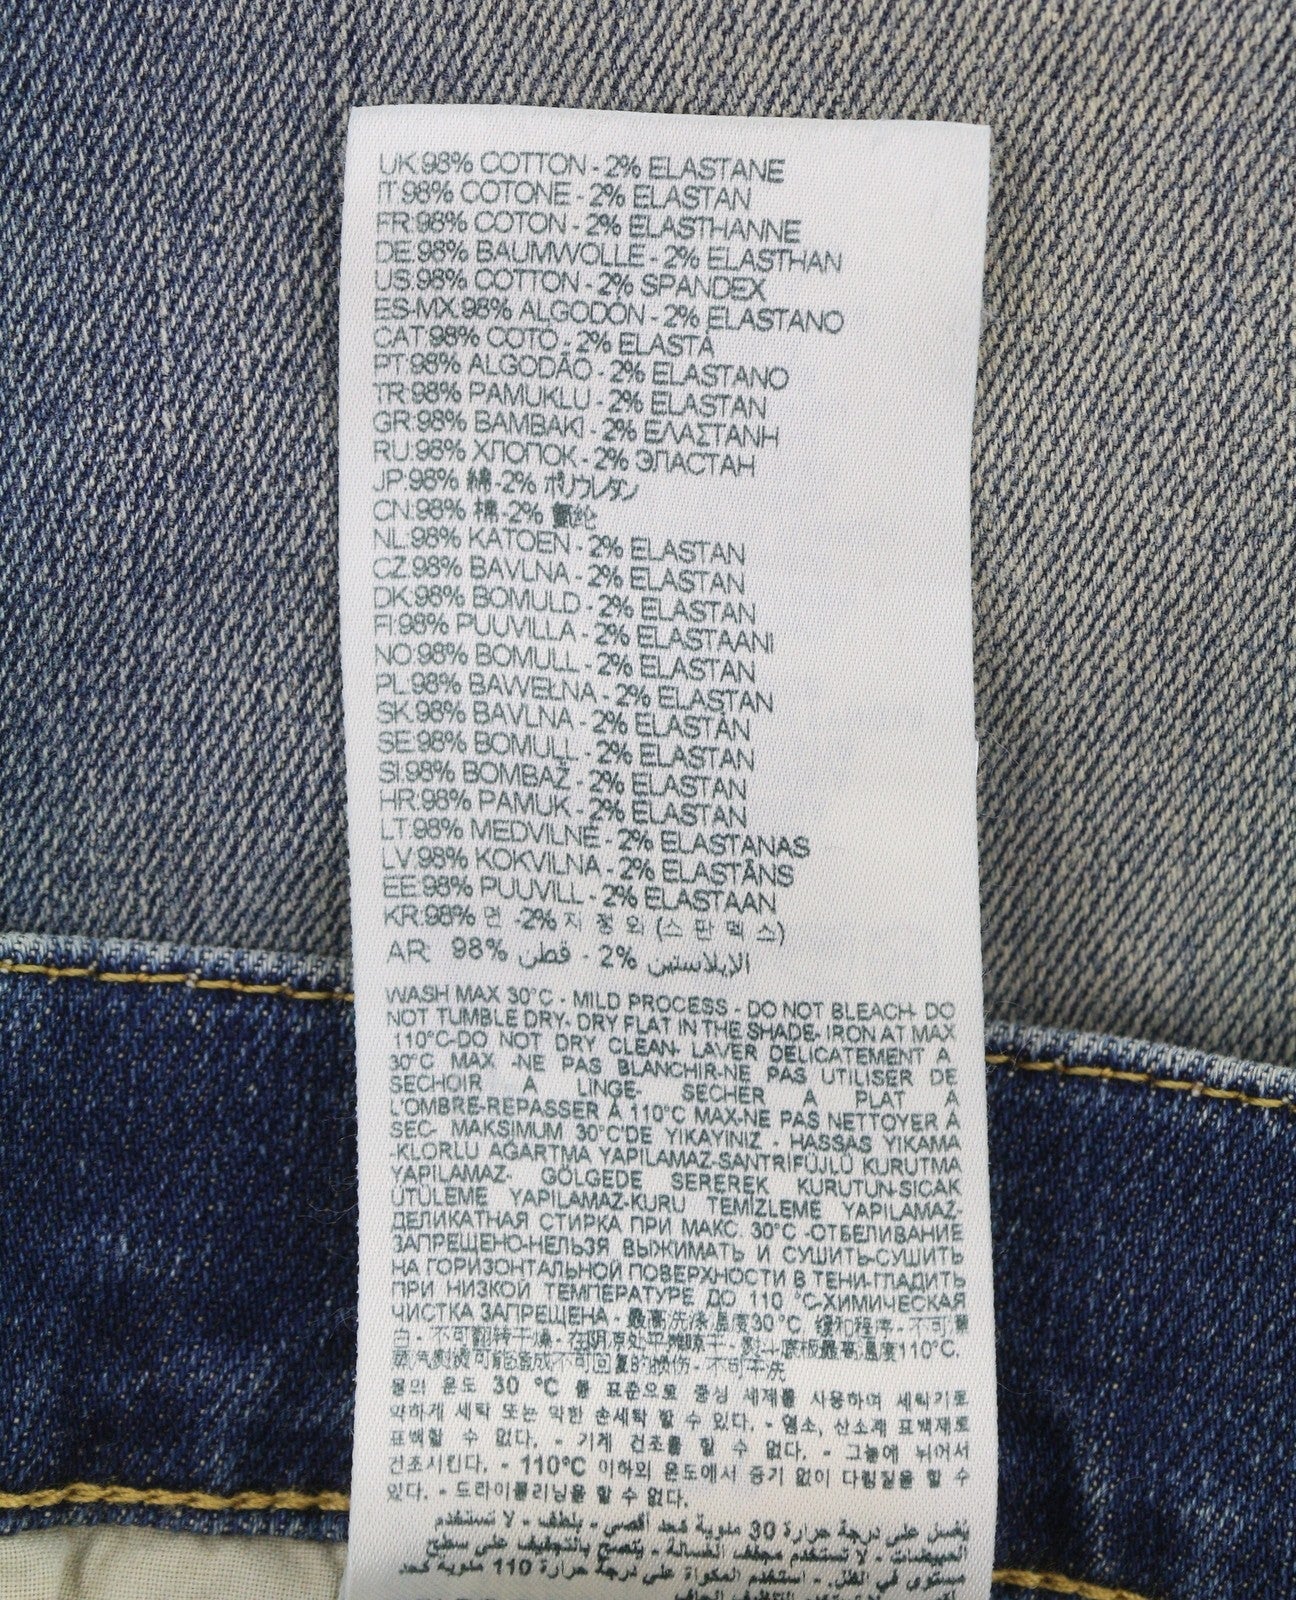 UK:98% COTTON - 2% ELASTANE
IT:98% COTONE - 2% ELASTAN
FR:98% COTON - 2% ELASTHANNE
DE:98% BAUMWOLLE - 2% ELASTHAN
US:98% COTTON - 2% SPANDEX
ES-MX:98% ALGODÓN - 2% ELASTANO
CAT:98% COTO - 2% ELASTÀ
PT:98% ALGODÃO - 2% ELASTANO
TR:98% PAMUKLU - 2% ELASTAN
GR:98% BAMBAKI - 2% ΕΛΑΣΤΑΝΗ
RU:98% ХЛОПОК - 2% ЭЛАСТАН
JP:98% 綿 -2% ポリウレタン
CN:98% 棉 -2% 氨纶
NL:98% KATOEN - 2% ELASTAN
CZ:98% BAVLNA - 2% ELASTAN
DK:98% BOMULD - 2% ELASTAN
FI:98% PUUVILLA - 2% ELASTAANI
NO:98% BOMULL - 2% ELASTAN
PL:98% BAWEŁNA - 2% ELASTAN
SK:98% BAVLNA - 2% ELASTAN
SE:98% BOMULL - 2% ELASTAN
SI:98% BOMBAŽ - 2% ELASTAN
HR:98% PAMUK - 2% ELASTAN
LT:98% MEDVILNĖ - 2% ELASTANAS
LV:98% KOKVILNA - 2% ELASTĀNS
EE:98% PUUVILL - 2% ELASTAAN
KR:98% 면 -2% 지정외 (스판덱스)
AR: 98% قطن - 2% الإيلاستين
WASH MAX 30°C - MILD PROCESS - DO NOT BLEACH- DO
NOT TUMBLE DRY- DRY FLAT IN THE SHADE- IRON AT MAX
110°C-DO NOT DRY CLEAN- LAVER DELICATEMENT A
30°C MAX -NE PAS BLANCHIR-NE PAS UTILISER DE
SECHOIR A LINGE- SECHER A PLAT A
L'OMBRE-REPASSER À 110°C MAX-NE PAS NETTOYER À
SEC- MAKSIMUM 30°C'DE YIKAYINIZ - HASSAS YIKAMA
-KLORLU AĞARTMA YAPILAMAZ-SANTRİFÜJLÜ KURUTMA
YAPILAMAZ- GÖLGEDE SEREREK KURUTUN-SICAK
ÜTÜLEME YAPILAMAZ-KURU TEMİZLEME YAPILAMAZ-
ДЕЛИКАТНАЯ СТИРКА ПРИ МАКС. 30°C -ОТБЕЛИВАНИЕ
ЗАПРЕЩЕНО-НЕЛЬЗЯ ВЫЖИМАТЬ И СУШИТЬ-СУШИТЬ
НА ГОРИЗОНТАЛЬНОЙ ПОВЕРХНОСТИ В ТЕНИ-ГЛАДИТЬ
ПРИ НИЗКОЙ ТЕМПЕРАТУРЕ ДО 110 °C-ХИМИЧЕСКАЯ
ЧИСТКА ЗАПРЕЩЕНА - 最高洗涤温度30°C. 缓和程序 - 不可漂
白 - 不可翻转干燥 - 在阴凉处平摊晾干 - 熨斗底板最高温度110°C.
蒸汽熨烫可能造成不可回复的损伤 - 不可干洗
물의 온도 30 °C 를 표준으로 중성 세제를 사용하여 세탁기로
약하게 세탁 또는 약한 손세탁 할 수 있다. - 염소, 산소계 표백제로
표백할 수 없다. - 기계 건조를 할 수 없다. - 그늘에 뉘어서
건조시킨다. - 110°C 이하의 온도에서 증기 없이 다림질을 할 수
있다. - 드라이클리닝을 할 수 없다.
يغسل على درجة حرارة 30 مئوية كحد أقصى - بلطف - لا تستخدم
المبيضات - لا تستخدم مجفف الغسالة - ينصح بالتجفيف على سطح
مستوى في الظل - استخدم المكواة على درجة حرارة 110 مئوية كحد